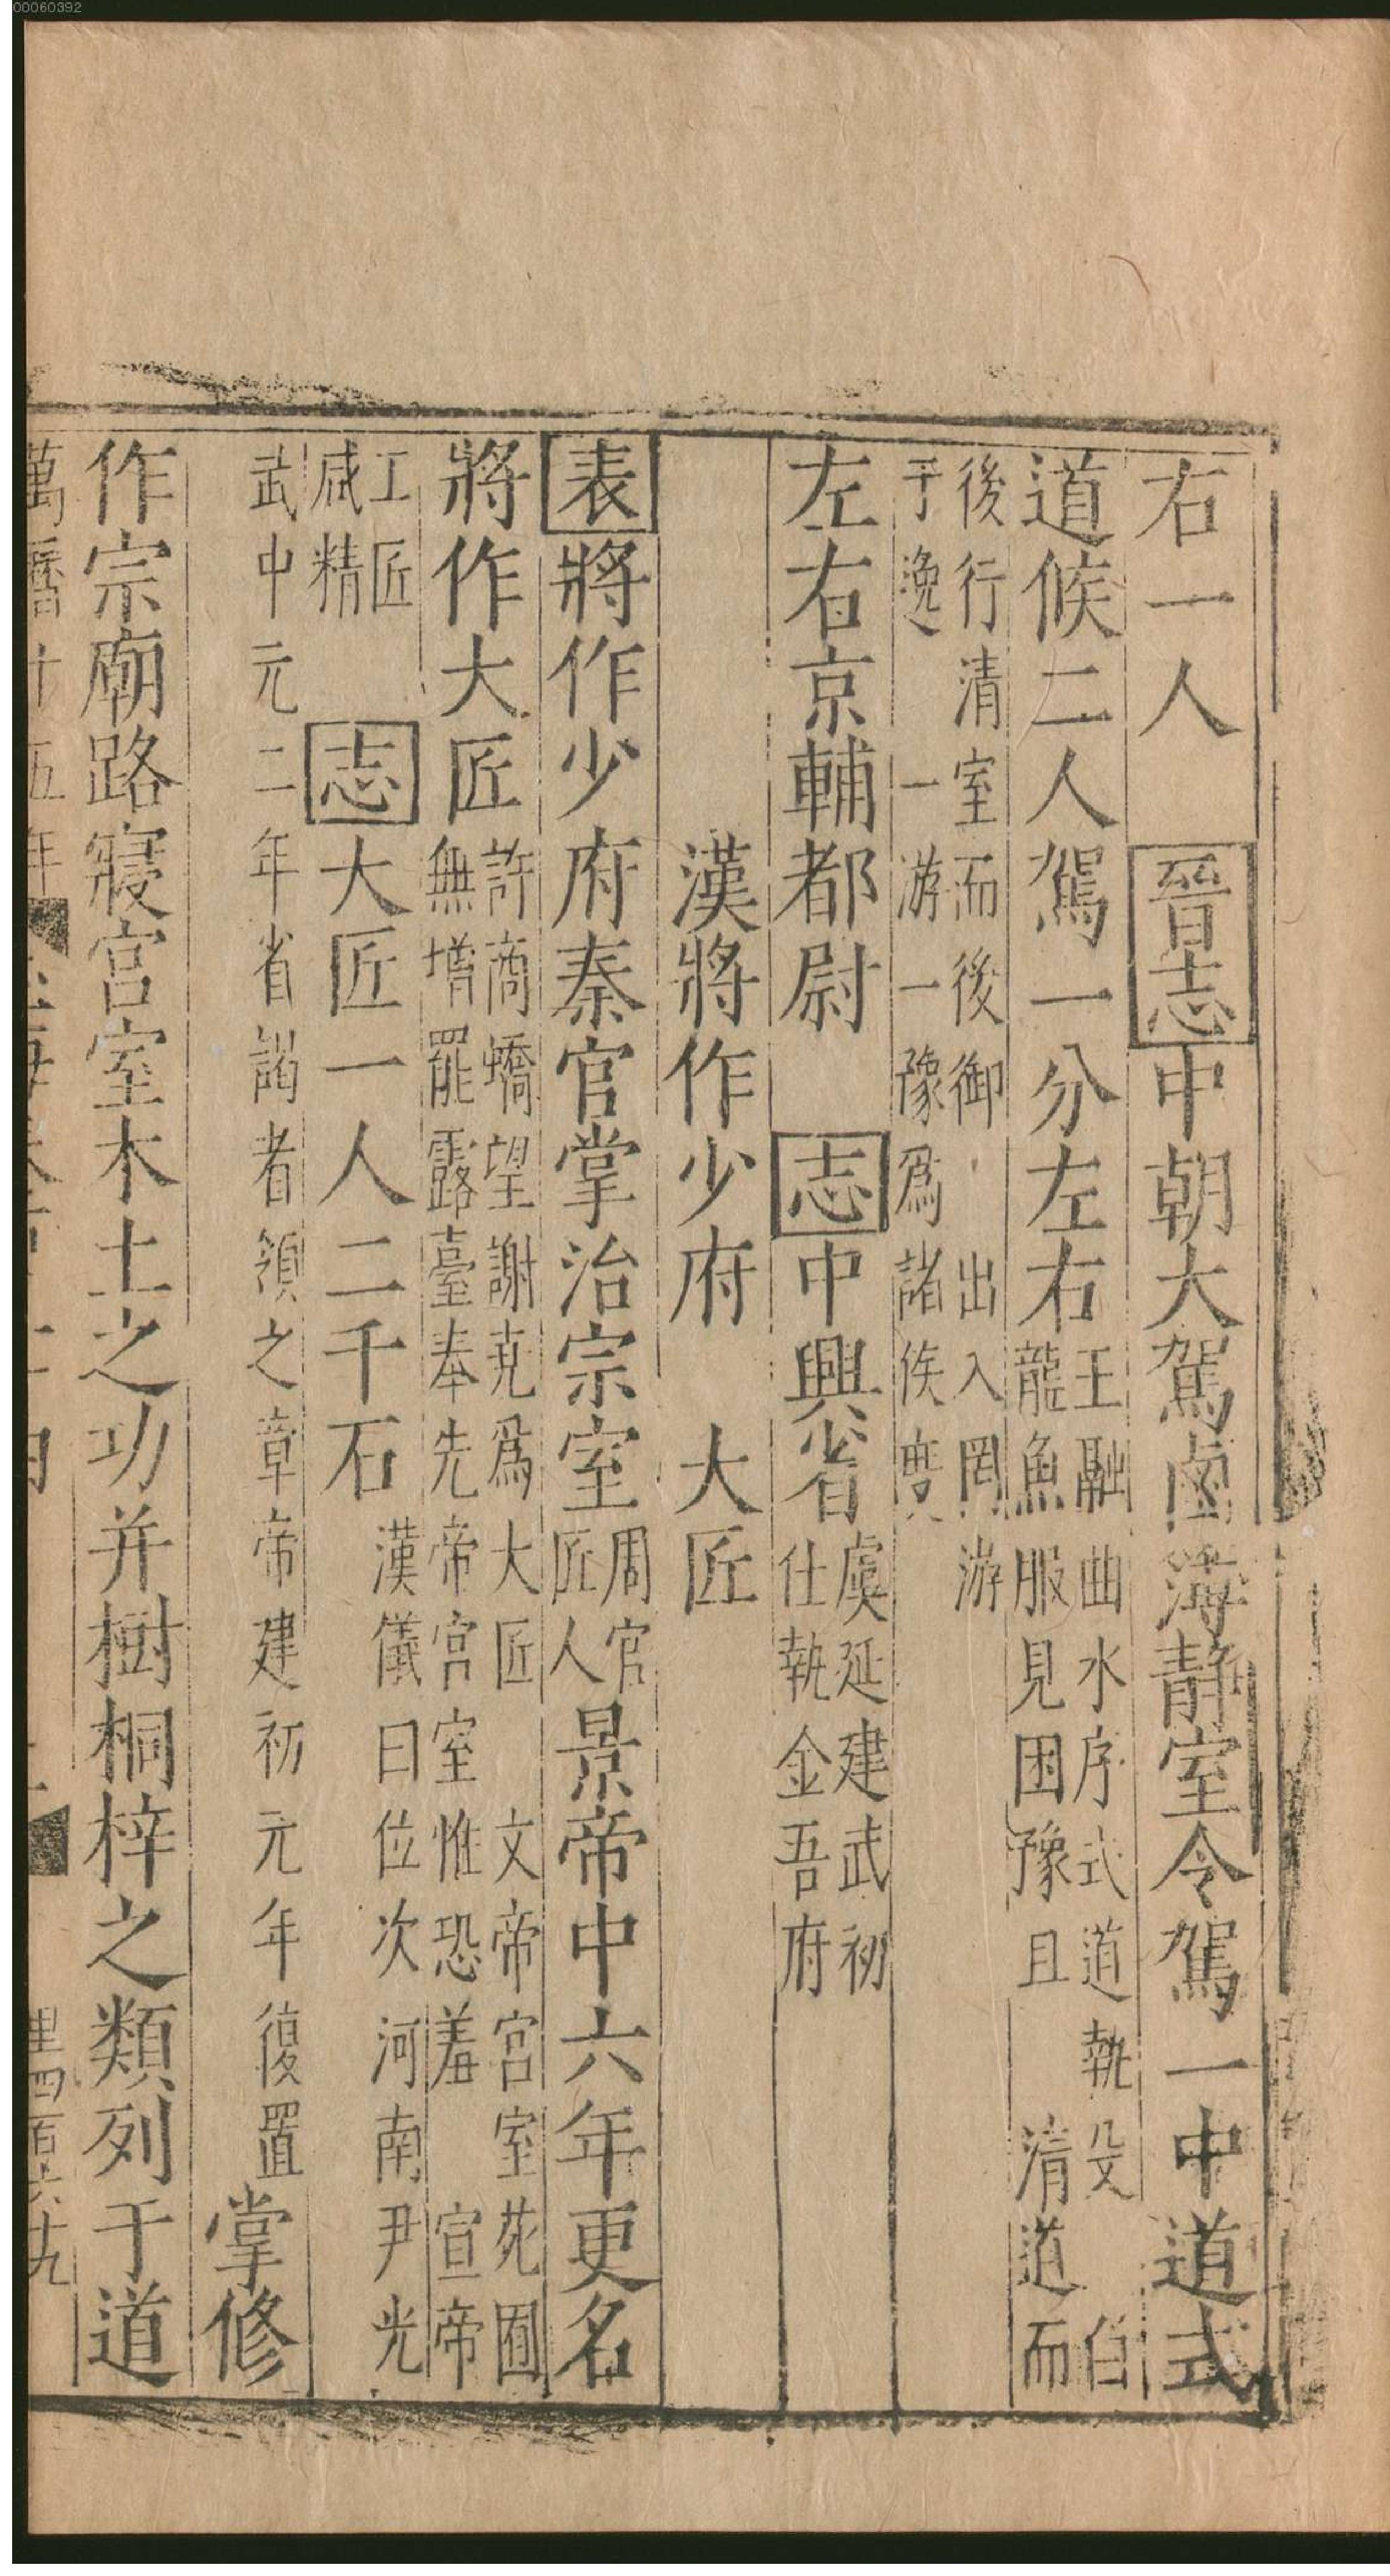 00060392
右一人 晉志中朝大駕鹵薄靜室令駕一中道式
道候二人駕一分左右王融曲水序式道執殳 白
龍魚服見困豫且 清道而
後行清室而後御 出入罔游
于逸 一游一豫爲諸侯度
左右京輔都尉 志中興省虞延建武初
仕執金吾府
漢將作少府 大匠
表將作少府秦官掌治宗室周官
匠人景帝中六年更名
將作大匠許商蟜望謝尭爲大匠 文帝宮室苑囿
無增罷露臺奉先帝宮室惟恐羞 宣帝
工匠
咸精 志大匠一人二千石漢儀曰位次河南尹光
武中元二年省謁者領之章帝建初元年復置掌修
作宗廟路寢宮室木土之功并樹桐梓之類列于道
萬曆十五年